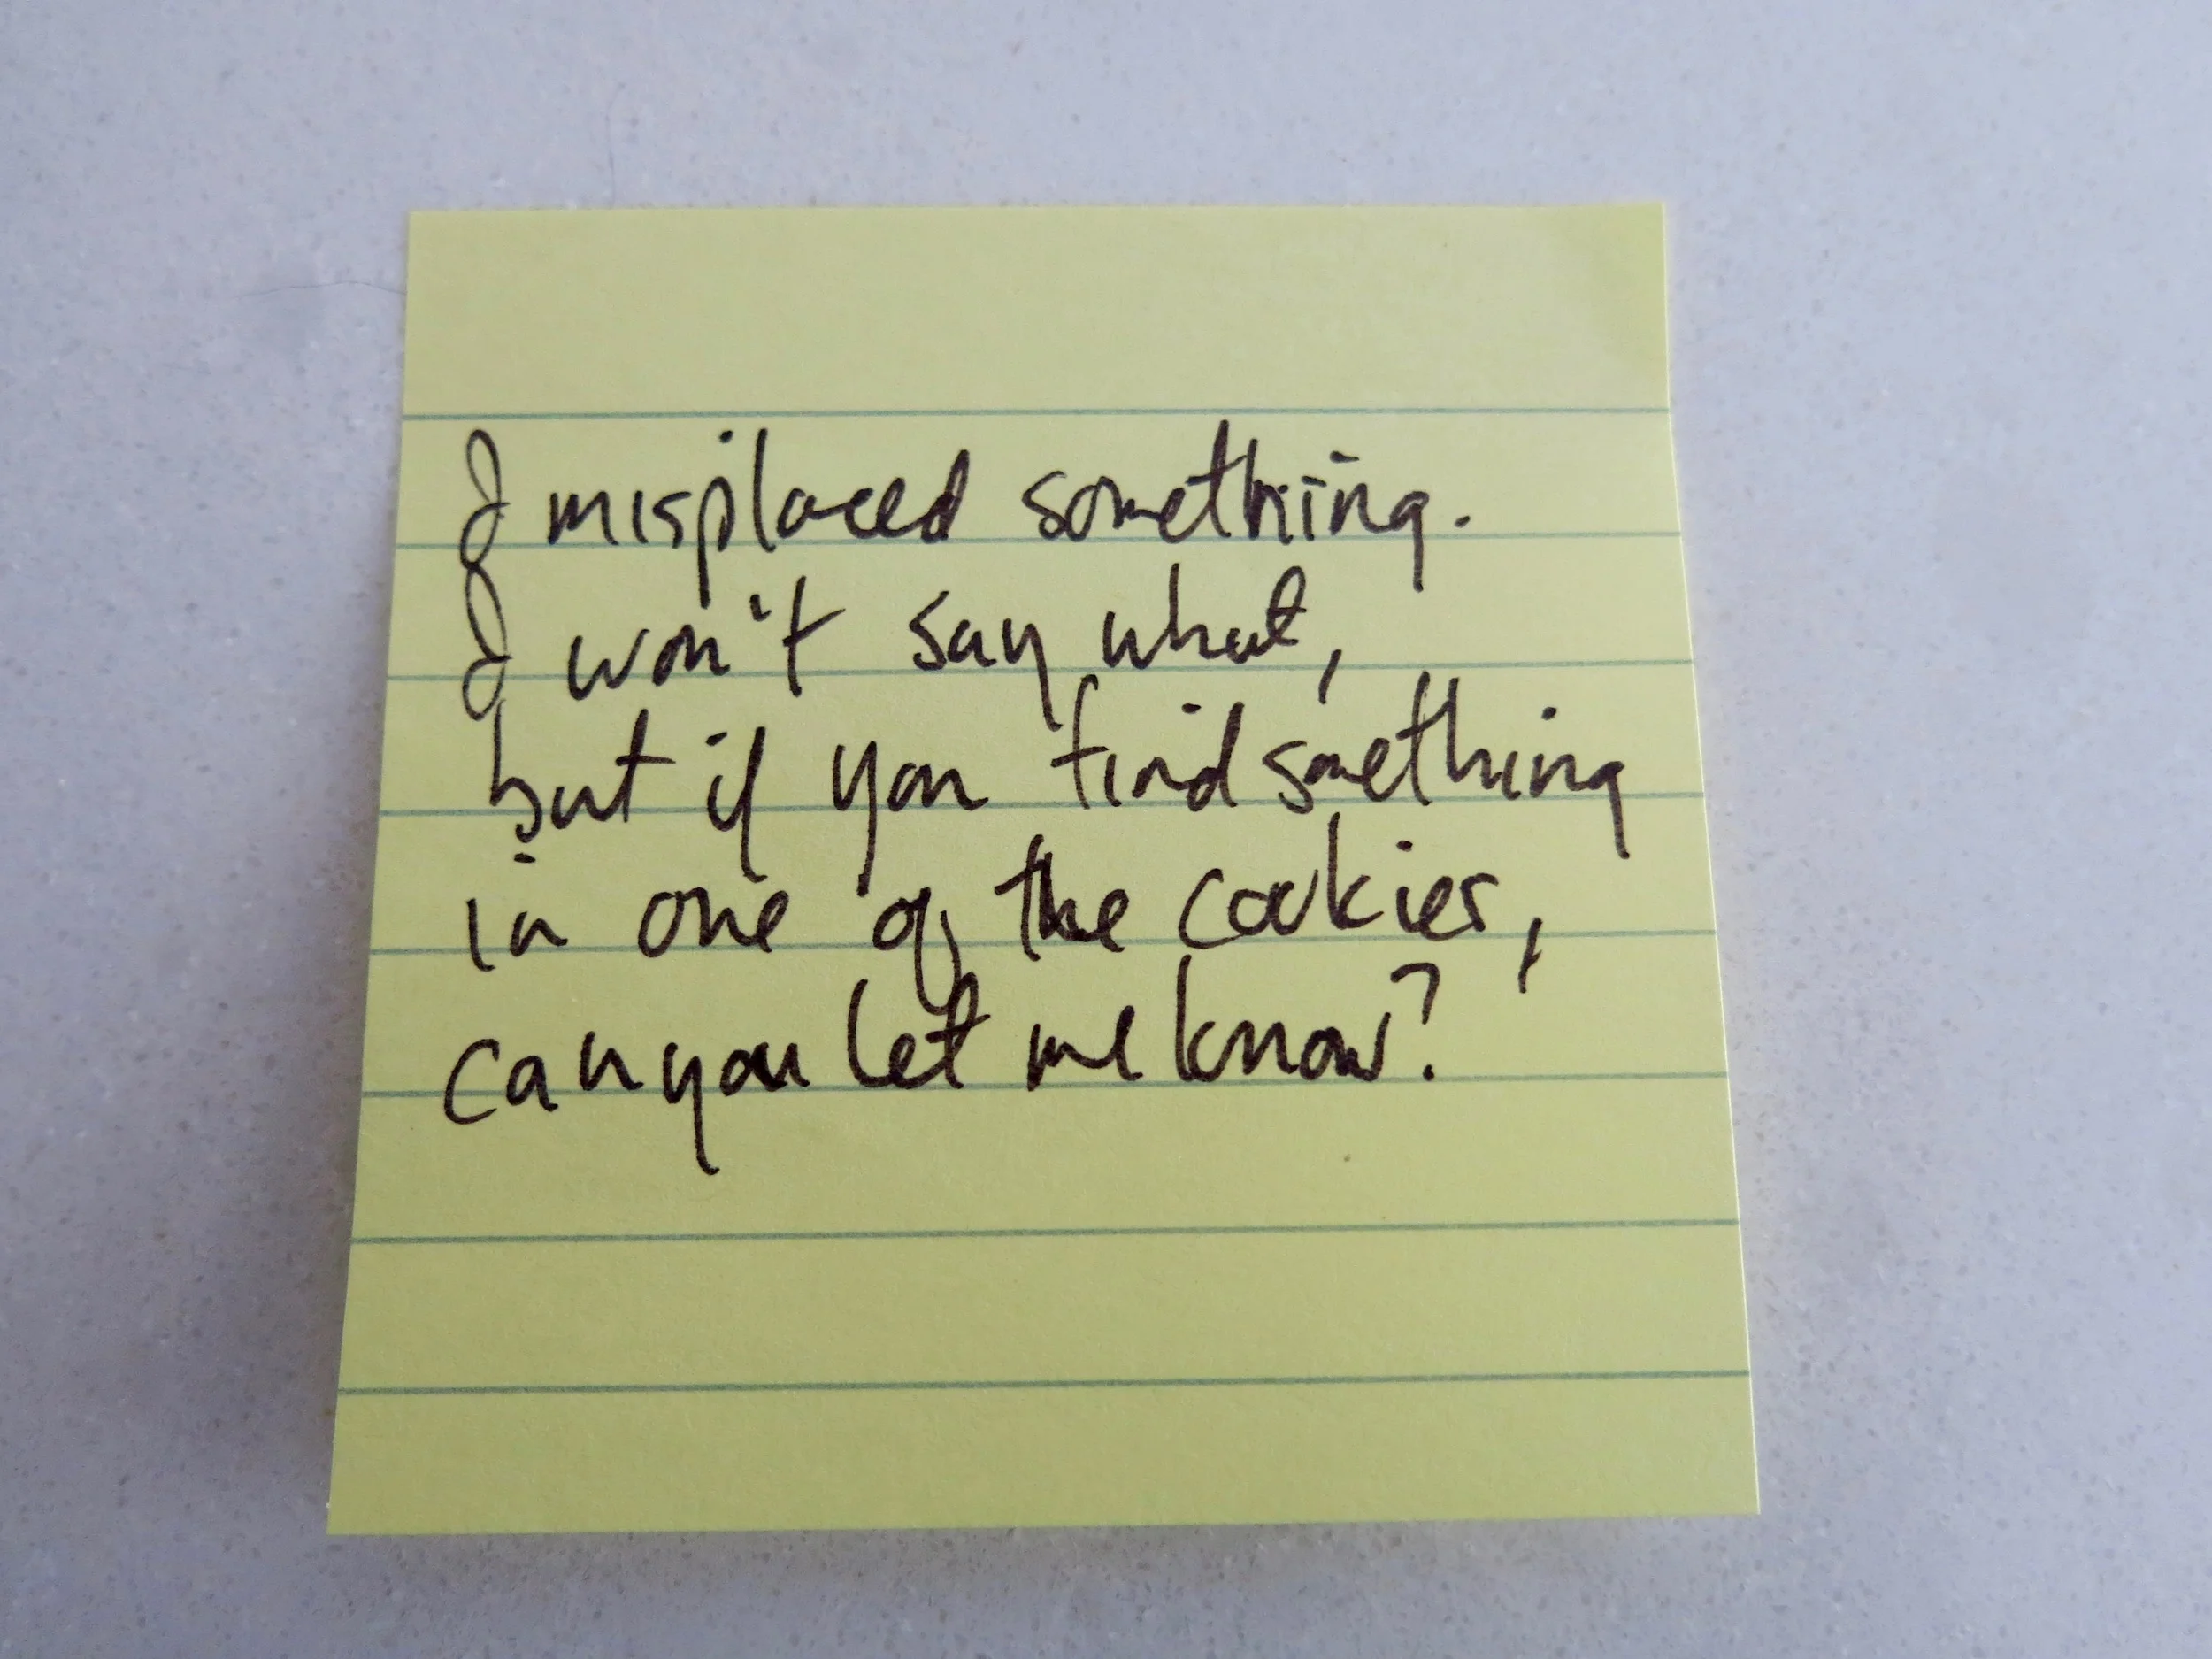 I misplaced something.
I won't say what,
but if you find something
in one of the cookies,
can you let me know?